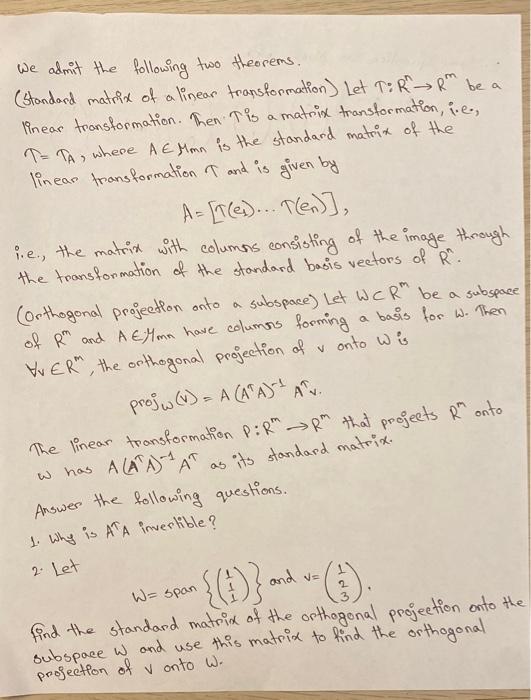 We admit the following two theorems.
(Standard matrix of a linear transformation) Let T: Rⁿ → Rᵐ be a
linear transformation. Then T is a matrix transformation, i.e.,
T = T_A, where A ∈ Mmn is the standard matrix of the
linear transformation T and is given by
A = [T(e₁) ... T(eₙ)],
i.e., the matrix with columns consisting of the image through
the transformation of the standard basis vectors of Rⁿ.
(Orthogonal projection onto a subspace) Let W ⊂ Rᵐ be a subspace
of Rᵐ and A ∈ Mmn have columns forming a basis for W. Then
∀v ∈ Rᵐ, the orthogonal projection of v onto W is
proj_W(v) = A (AᵀA)⁻¹ Aᵀv.
The linear transformation P: Rᵐ → Rᵐ that projects Rᵐ onto
W has A(AᵀA)⁻¹Aᵀ as its standard matrix.
Answer the following questions.
1. Why is AᵀA invertible?
2. Let
W = span {(1 1 1)} and v = (1 2 3).
Find the standard matrix of the orthogonal projection onto the
subspace W and use this matrix to find the orthogonal
projection of v onto W.